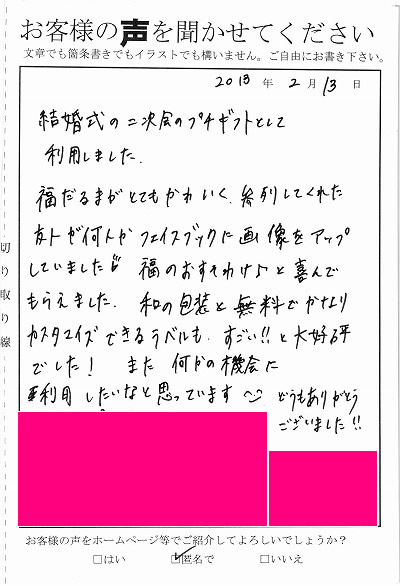 お客様の声を聞かせてください
文章でも箇条書きでもイラストでも構いません。ご自由にお書き下さい。
2013 年 2 月 13 日
結婚式の二次会のプチギフトとして
利用しました。
福だるまがとてもかわいく、参列してくれた
友人が何人か フェイスブックに画像をアップ
していました 福のおすそわけ♪と喜んで
もらえました。 和の包装と無料でかなり
カスタマイズできるラベルも、すごい!!と大好評
でした! また 何かの機会に
利用したいなと思っています
どうもありがとう
ございました!!
切り取り線
お客様の声をホームページ等でご紹介してよろしいでしょうか?
□はい ☑匿名で □いいえ